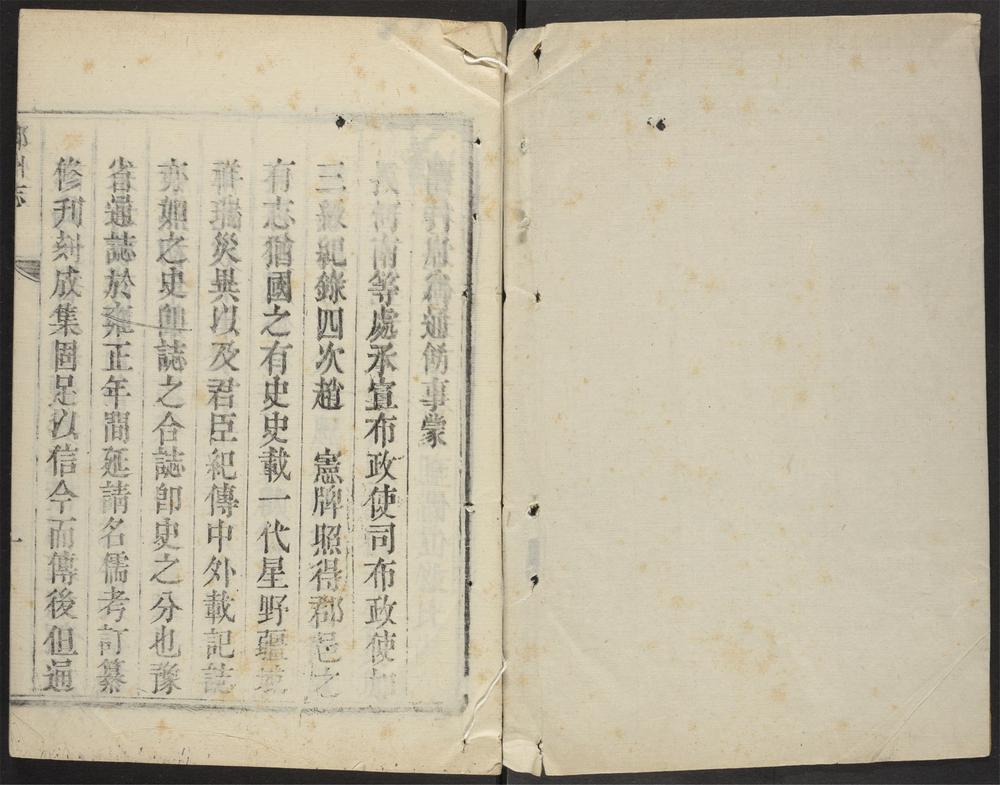 通飭事蒙
河南等處承宣布政使司布政使加
三級紀錄四次趙　憲牌照得郡邑之
有志猶國之有史史載一代星野疆域
祥瑞災異以及君臣紀傳中外載記誌
亦如之史與誌之合誌卽史之分也豫
省通誌於雍正年間延請名儒考訂纂
修刋刻成集固足以信今而傳後但通
州志
一